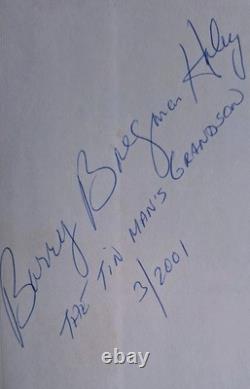 Barry Bregman Haley
THE TIN MAN'S GRANDSON
3/2001